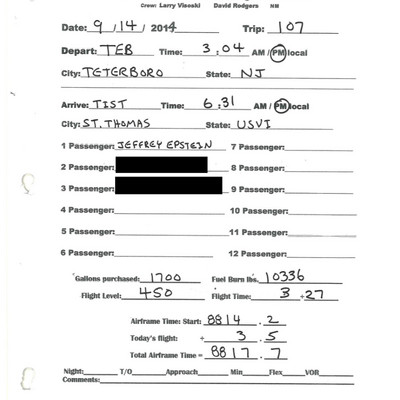 Crew: Larry Visoski David Rodgers NM
Date: 9/14/2014 Trip: 107
Depart: TEB Time: 3:04 AM / PM local
City: TETERBORO State: NJ
Arrive: TIST Time: 6:31 AM / PM local
City: ST. THOMAS State: USVI
1 Passenger: JEFFREY EPSTEIN 7 Passenger:
2 Passenger: 8 Passenger:
3 Passenger: 9 Passenger:
4 Passenger: 10 Passenger:
5 Passenger: 11 Passenger:
6 Passenger: 12 Passenger:
Gallons purchased: 1700 Fuel Burn lbs. 10336
Flight Level: 450 Flight Time: 3 + 27
Airframe Time: Start: 8814 . 2
Today's flight: + 3 . 5
Total Airframe Time = 8817 . 7
Night: T/O Approach Min Flex VOR
Comments: